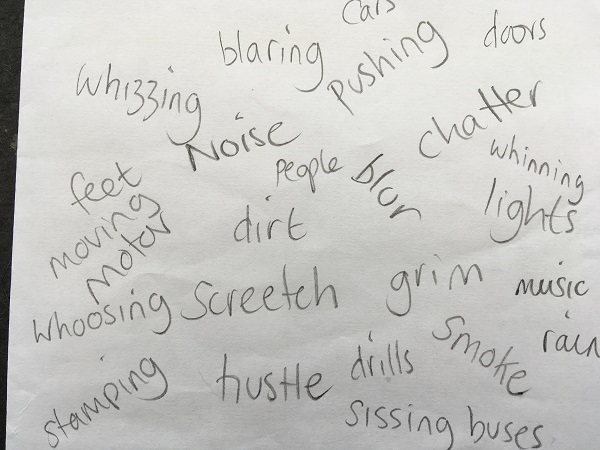 cars
blaring
pushing
doors
whizzing
Noise
chatter
people
blur
whinning
feet
moving
motor
dirt
lights
whoosing
screetch
grim
music
stamping
hustle
drills
smoke
rain
sissing buses